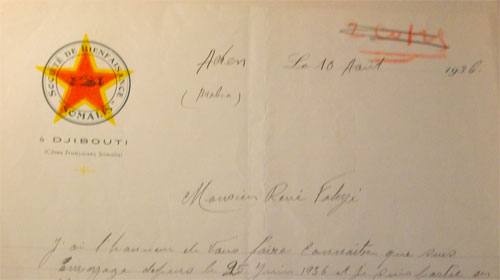 SOCIÉTÉ DE BIENFAISANCE
SOMALIS
à DJIBOUTI
(Côte Française Somalis)
Aden Le 10 Août 1936
(Arabia)
Monsieur René
J'ai l'honneur de vous faire connaître que suis
depuis le 25 Juin 1936 et je suis